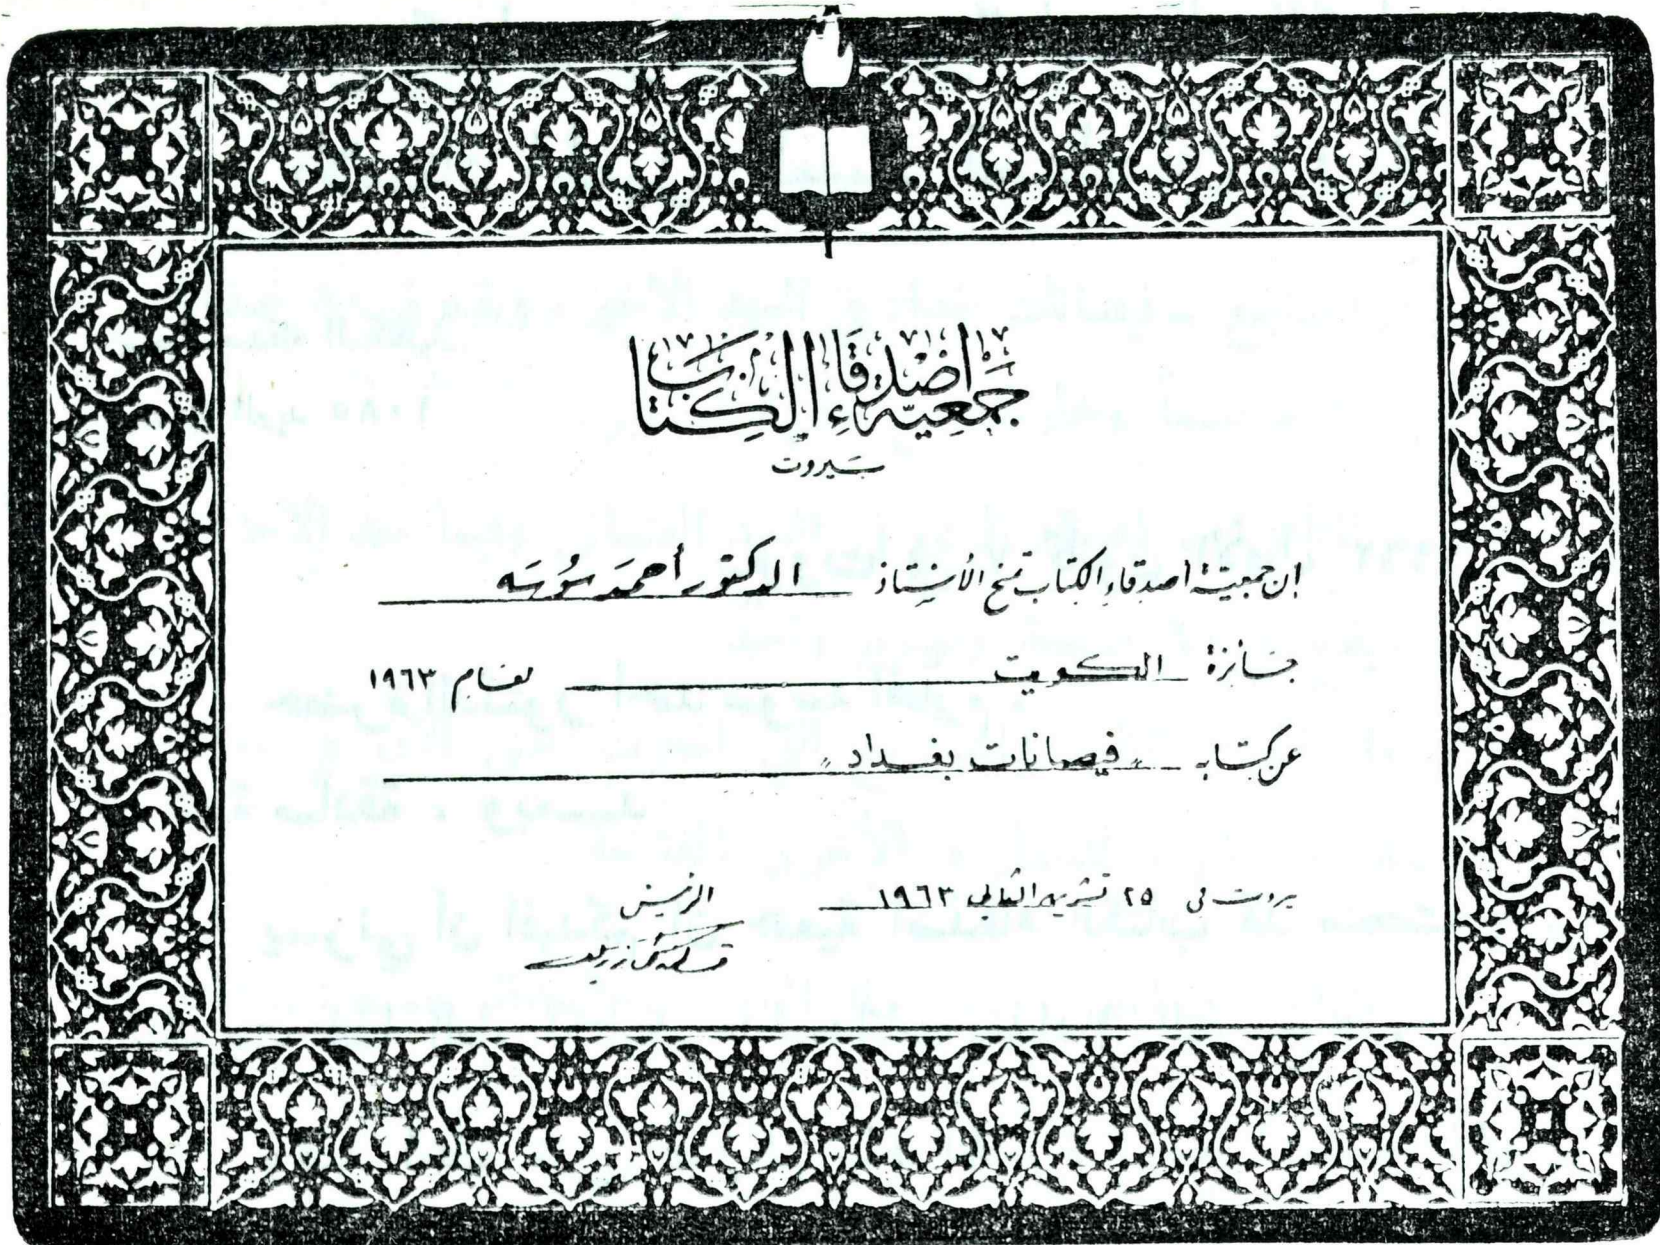 جمعية أصدقاء الكتاب
بيروت
ان جمعية أصدقاء الكتاب تمنح الأستاذ الدكتور أحمد سوسه
جائزة الكويت لعام ١٩٦٣
عن كتابه "فيضانات بغداد"
بيروت في ٢٥ تشرين الثاني ١٩٦٣
الرئيس